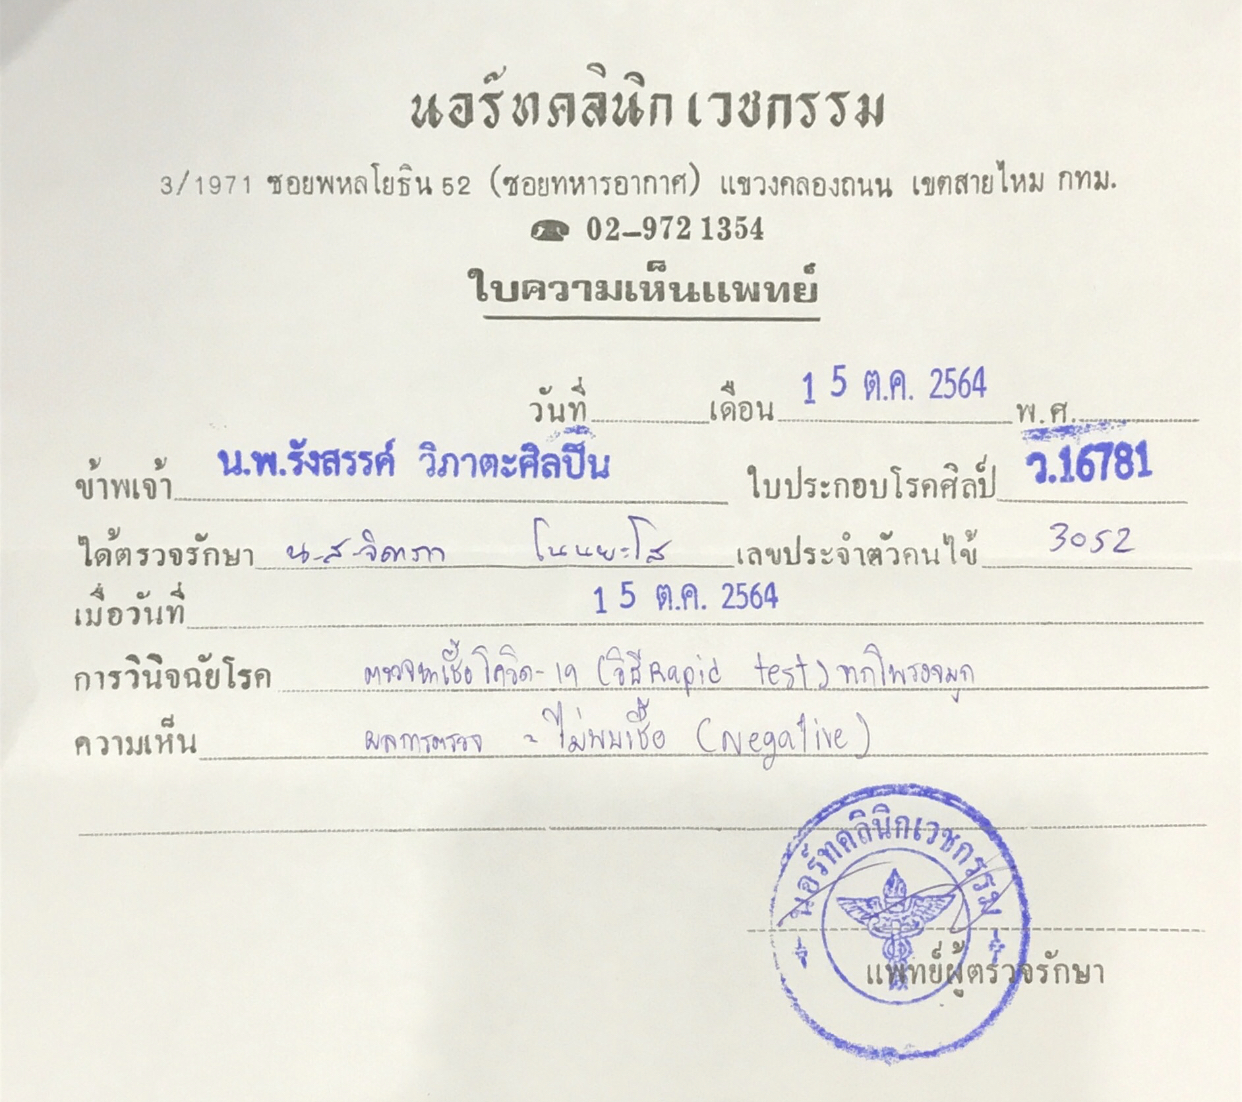 นอร์ทคลินิกเวชกรรม
3/1971 ซอยพหลโยธิน 52 (ซอยทหารอากาศ) แขวงคลองถนน เขตสายไหม กทม.
☎ 02-972 1354
ใบความเห็นแพทย์
วันที่ เดือน 15 ต.ค. 2564 พ.ศ.
ข้าพเจ้า น.พ.รังสรรค์ วิภาตะศิลปิน ใบประกอบโรคศิลป์ ว.16781
ได้ตรวจรักษา น.ส.จิดาภา โนนยะโส เลขประจำตัวคนไข้ 3052
เมื่อวันที่ 15 ต.ค. 2564
การวินิจฉัยโรค ตรวจหาเชื้อโควิด-19 (วิธี Rapid test) ทางโพรงจมูก
ความเห็น ผลการตรวจ - ไม่พบเชื้อ (Negative)
นอร์ทคลินิกเวชกรรม
แพทย์ผู้ตรวจรักษา